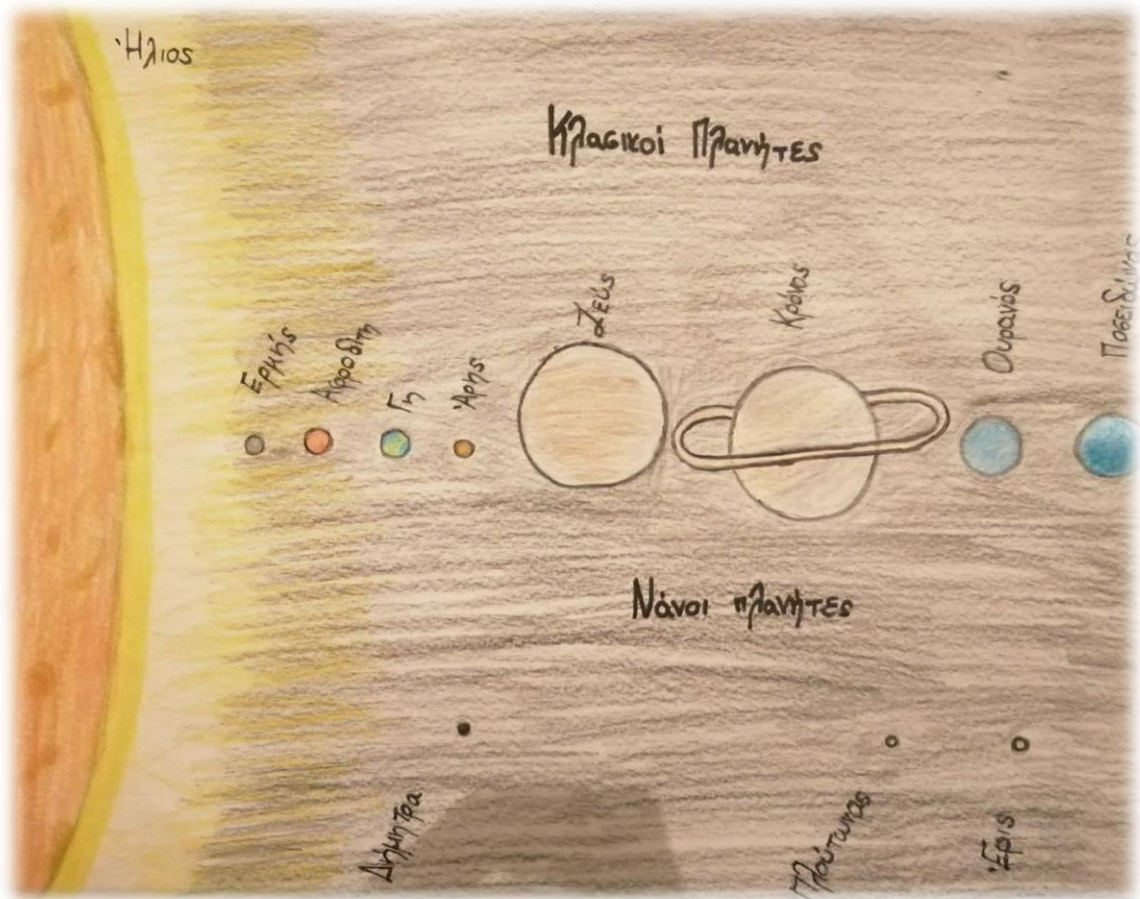 Ήλιος
Κλασικοί Πλανήτες
Ερμής
Αφροδίτη
Γη
Άρης
Ζεύς
Κρόνος
Ουρανός
Ποσειδώνας
Νάνοι πλανήτες
Δήμητρα
Πλούτωνας
Έρις